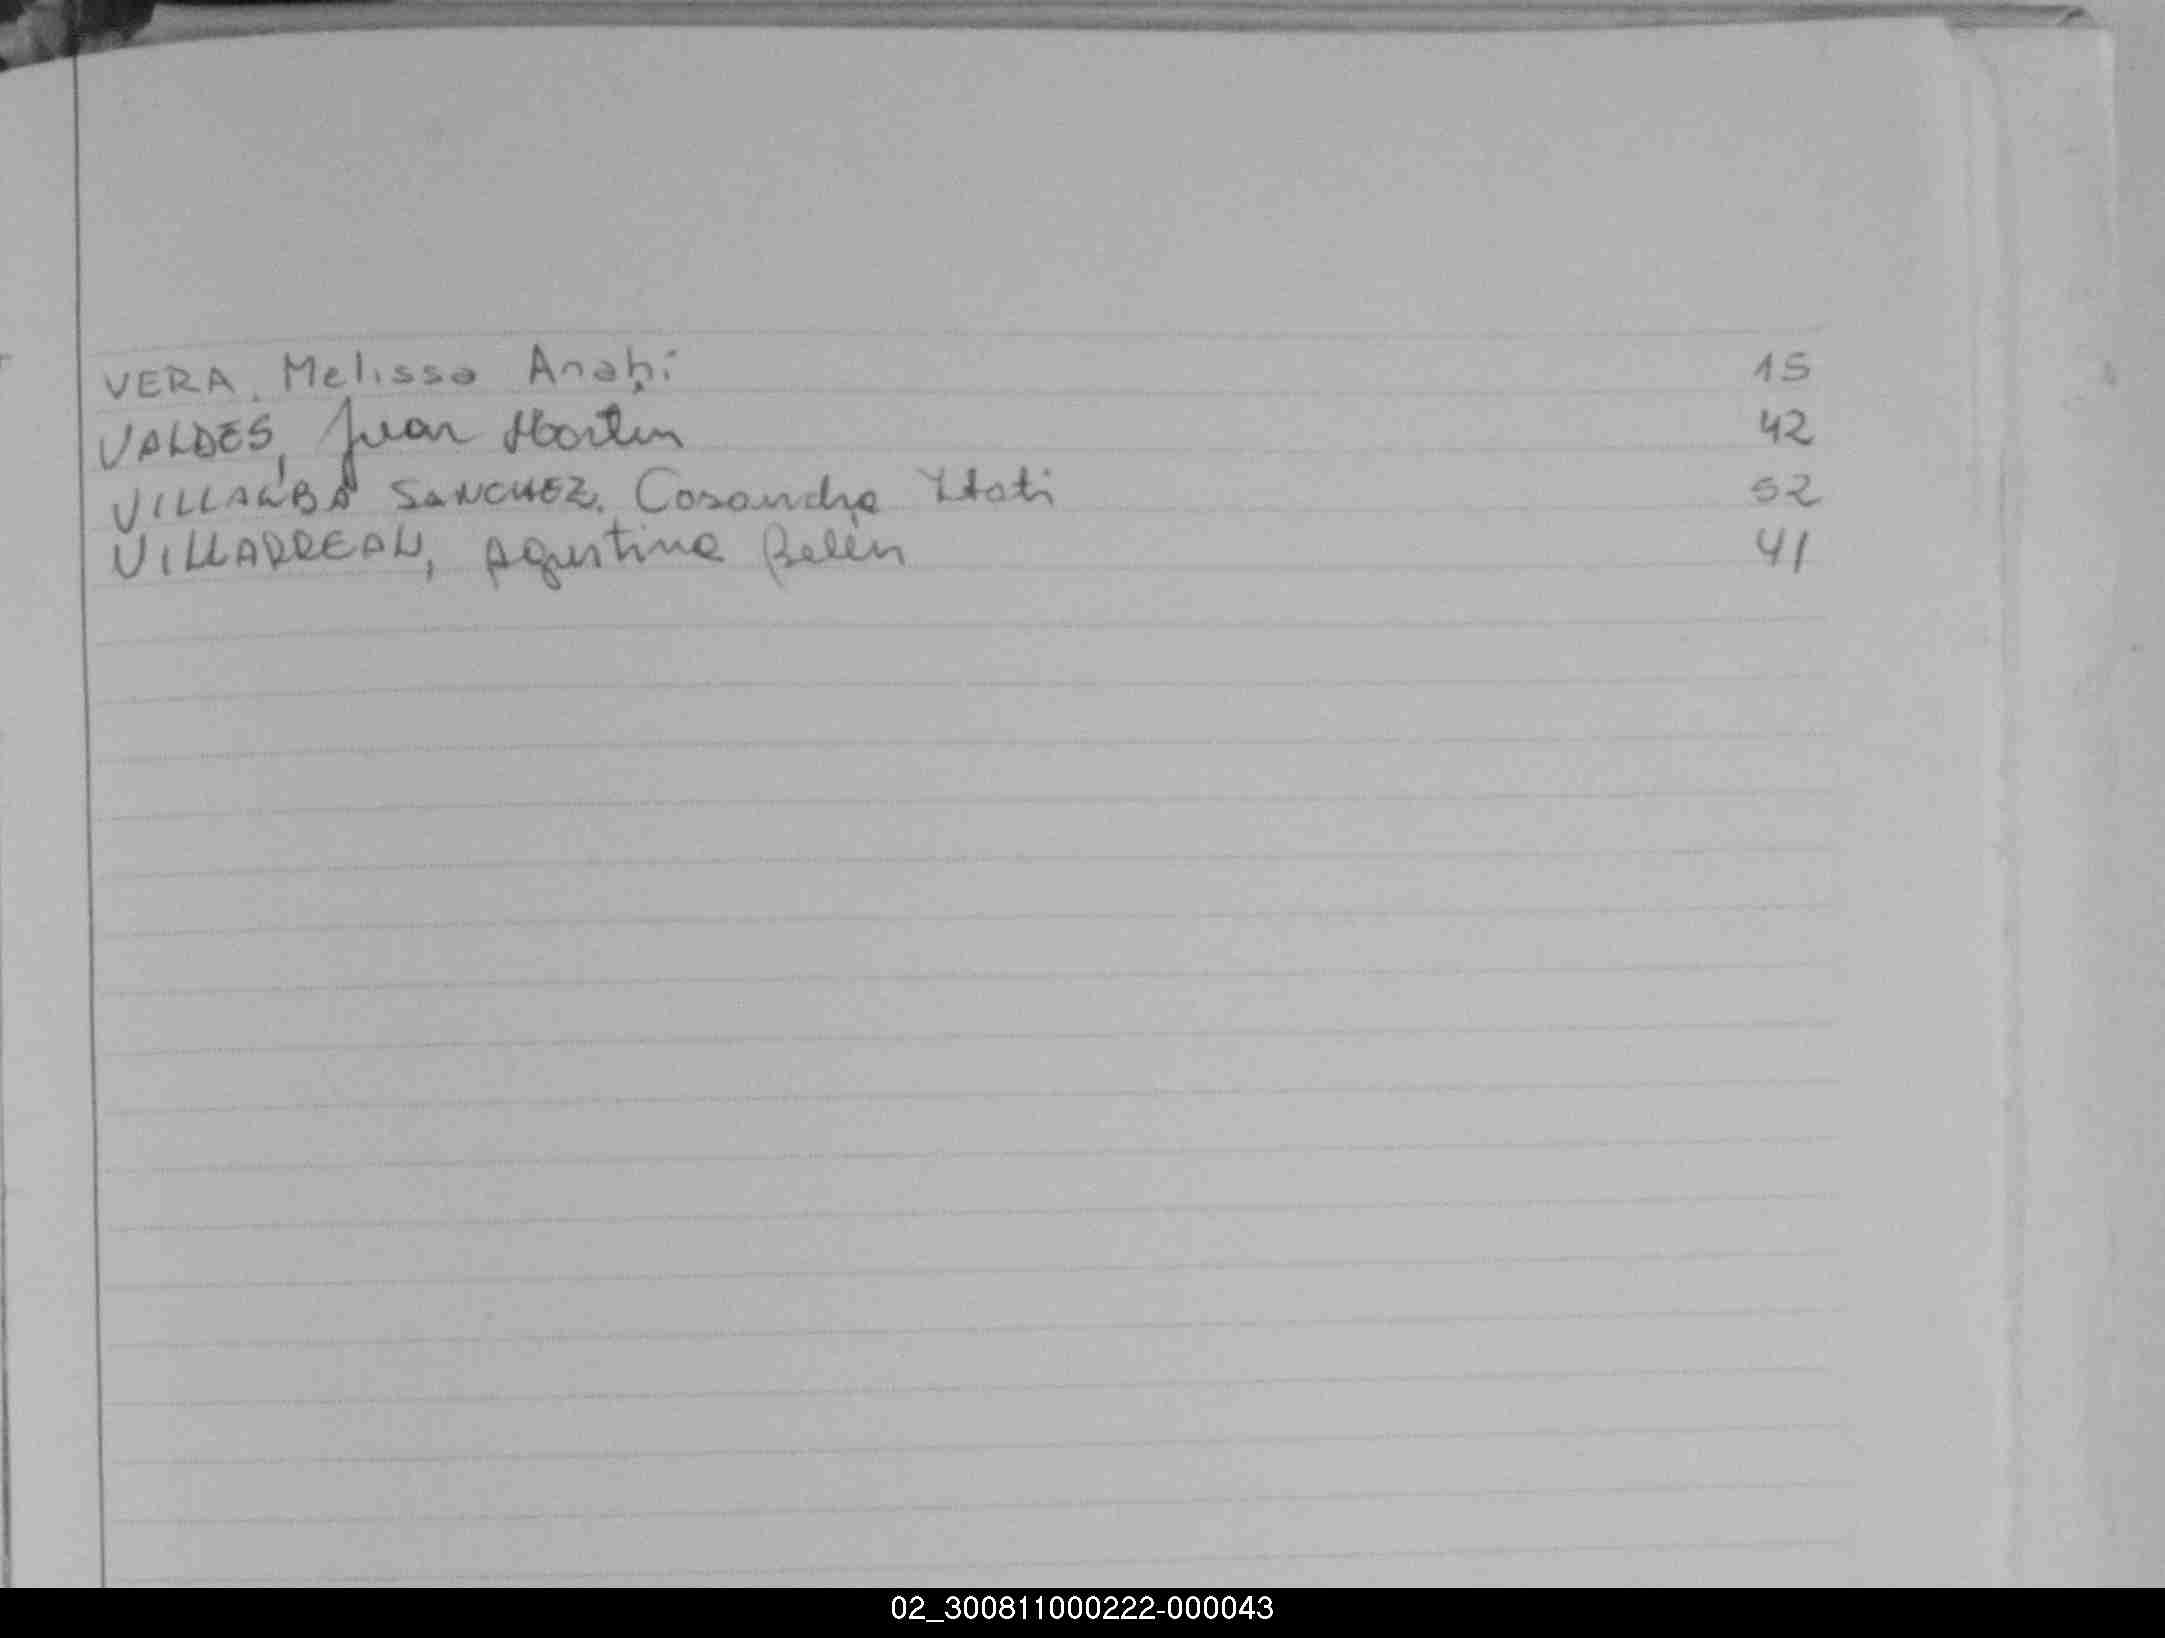 VERA, Melissa Anahi 15
VALDES, Juan Martin 42
VILLALBA SANCHEZ, Casandra Itati 52
VILLARREAL, Agustina Belén 41
02_300811000222-000043